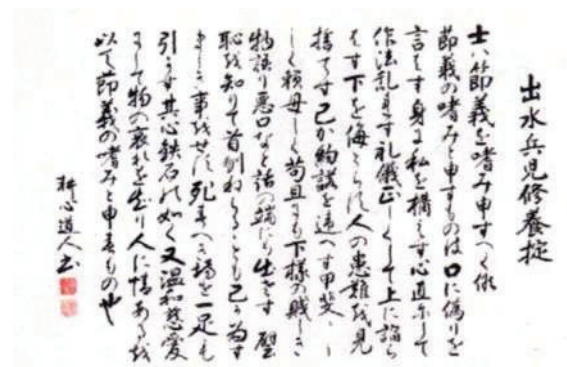 出水兵児修養掟
士ハ節義を嗜み申すへく候
節義の嗜みと申すものは口に偽りを
言はす身に私を構へす心直にして
作法乱れす礼儀正しくして上に諂ら
はす下を侮とらす人の患難を見
捨てす己か約諾を違へす甲斐〱
しく頼母しく苟且にも下様の賎しき
物語り悪口など話の端にも出さす譬
恥を知りて首刎ねらるゝとも己か為す
ましき事をせす死すへき場を一足も
引かす其心鉄石の如く又温和慈愛
にして物の哀れを知り人に情あるを
以て節義の嗜みと申すもの也
心道人書